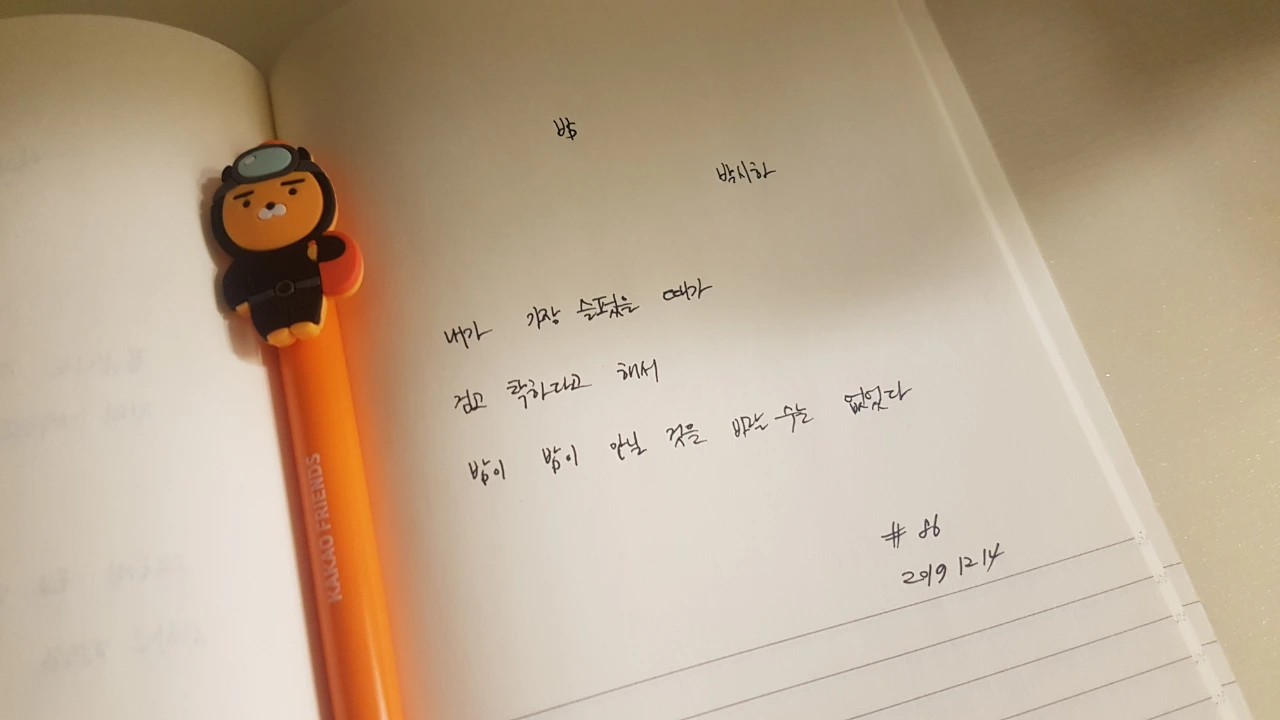 밤
박시하
내가 가장 슬펐을 때가
검고 탁하다고 해서
밤이 밤이 아닐 것을 바랄 수는 없었다
# 86
2019 12 14
KAKAO FRIENDS